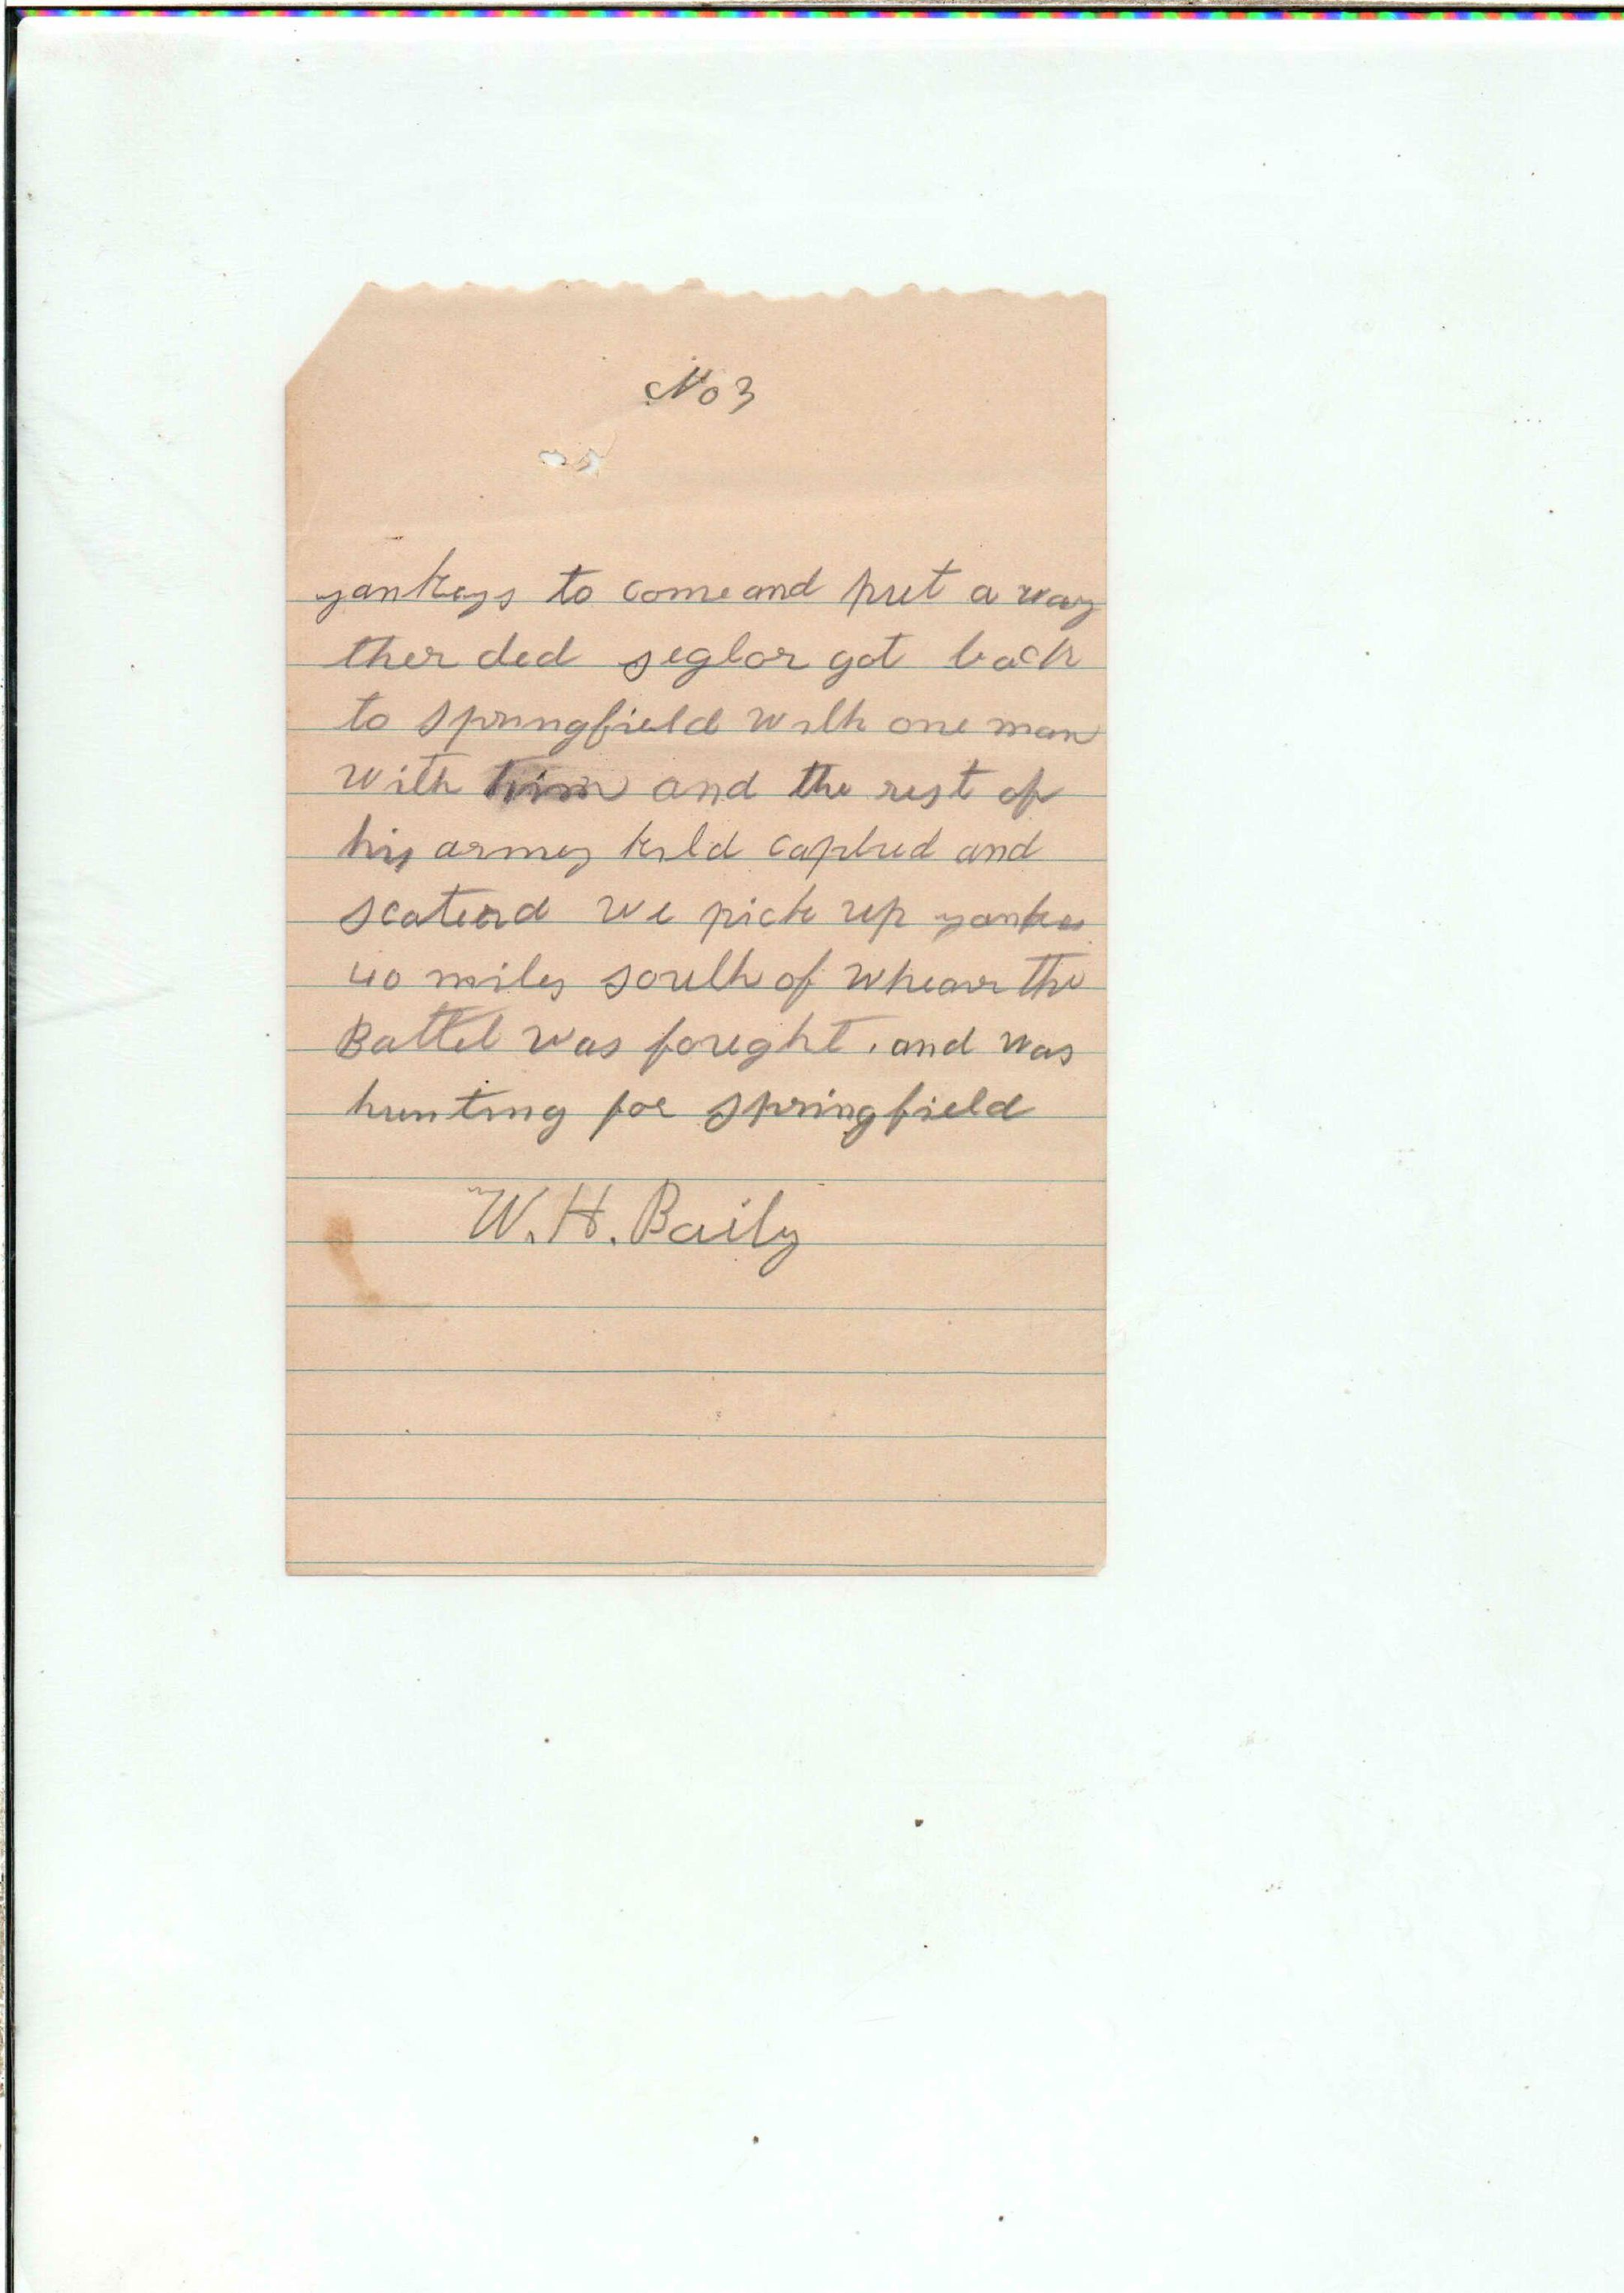 No 3
yankeys to come and put a way
ther ded seglor got back
to springfield with one man
with him and the rest of
his armey kild captud and
scaterd we pick up yankes
40 miles south of whear the
Battel was fought . and was
hunting for springfield
W. H. Baily